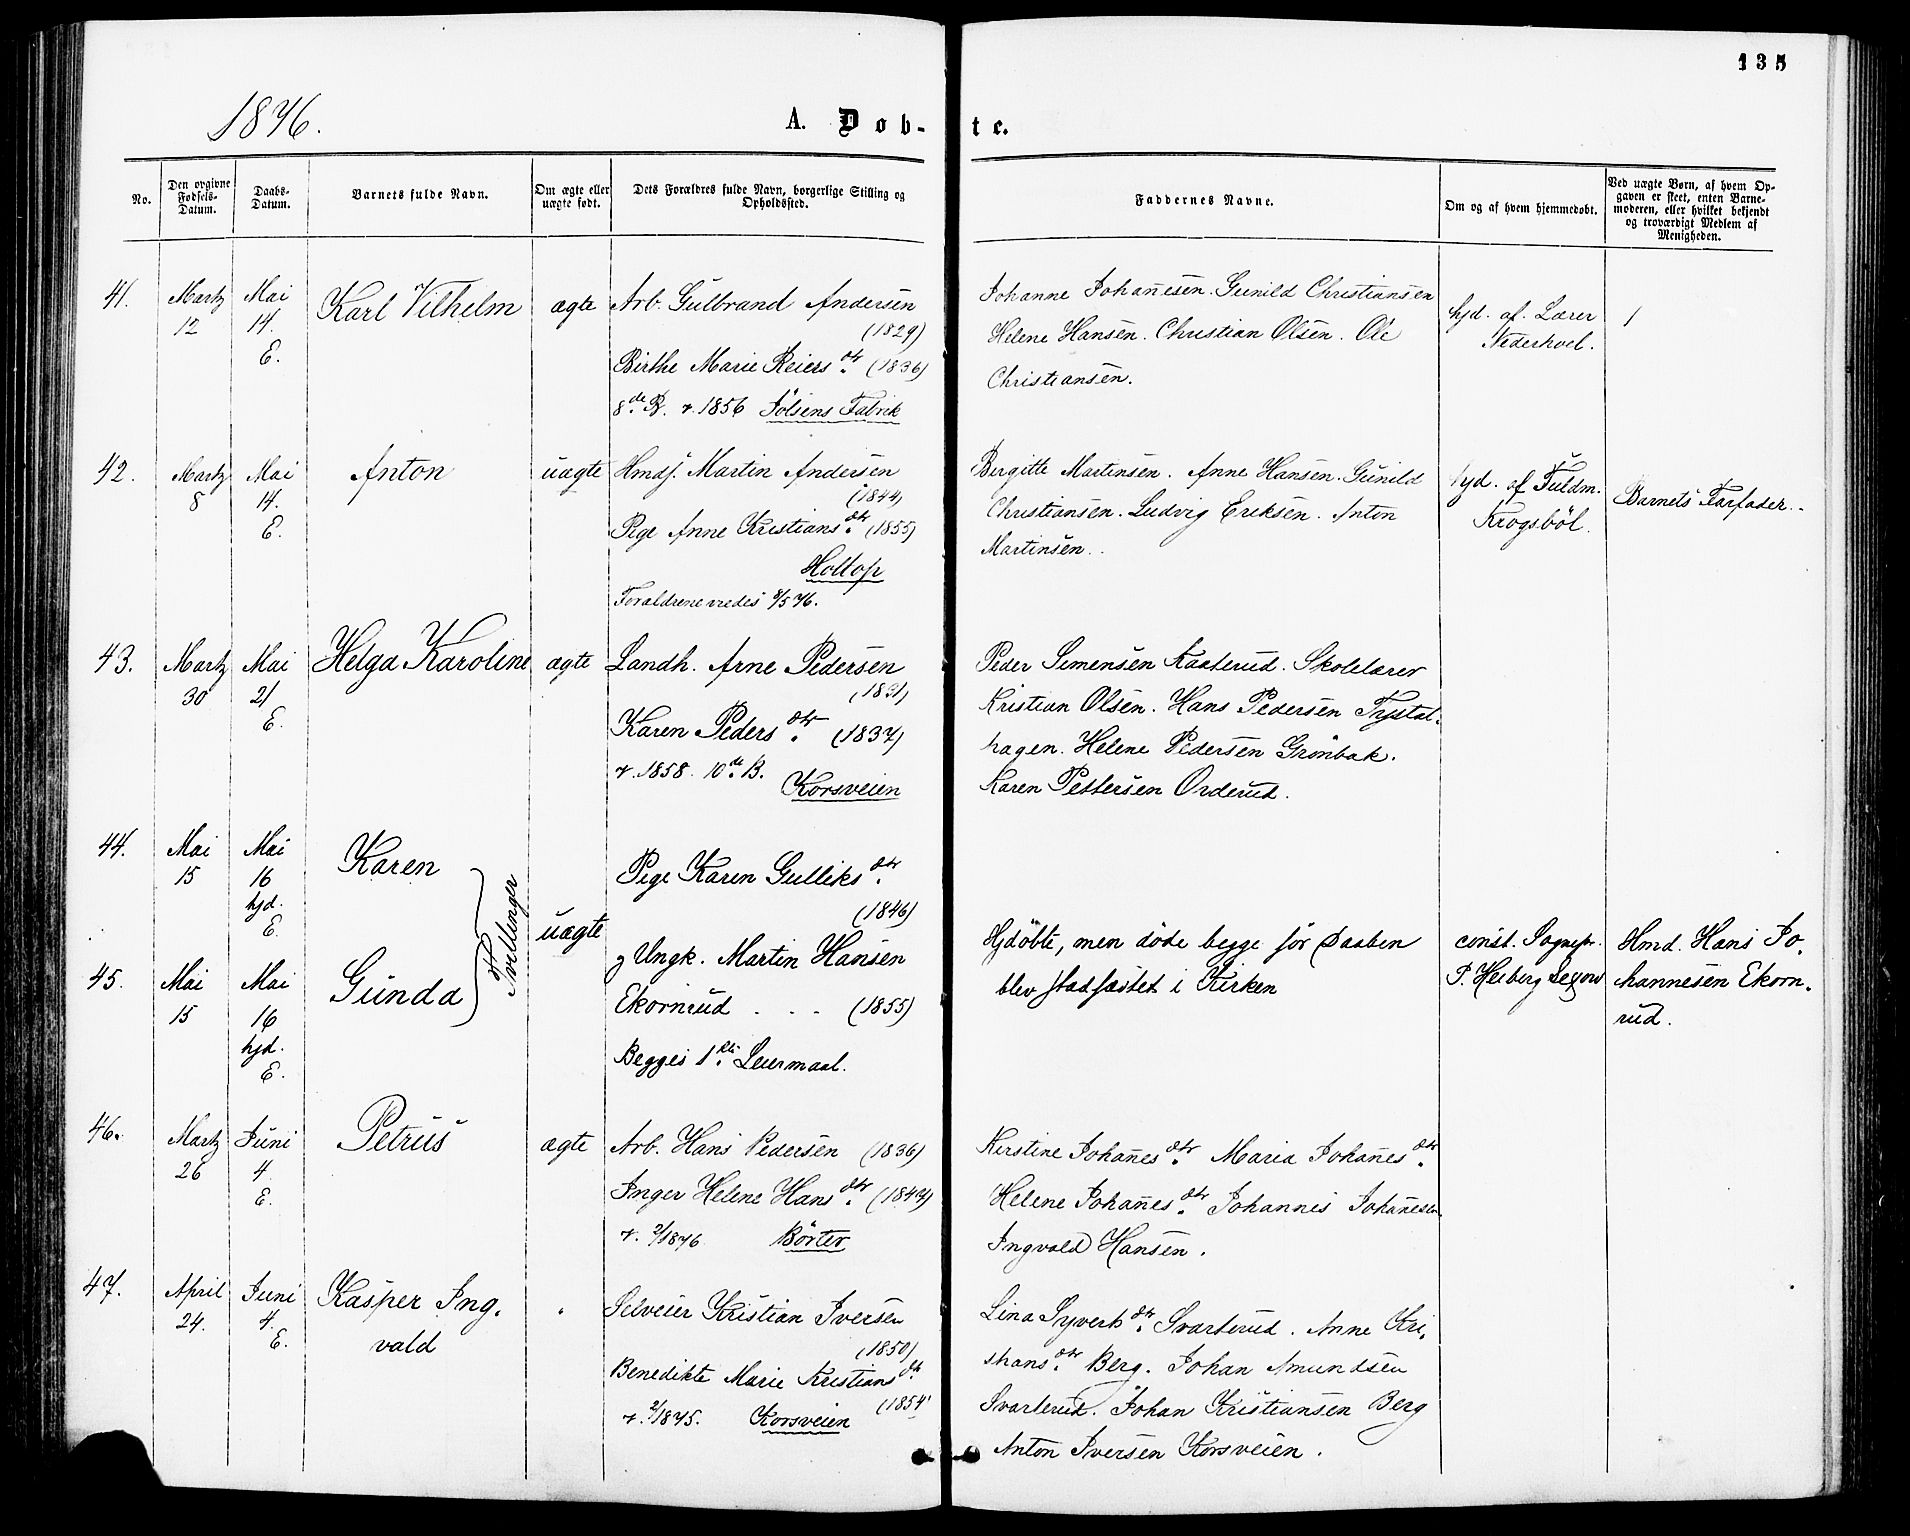 135
1876.
A. Døb-te.
No.
Den opgivne Fødsels-Datum.
Daabs-Datum.
Barnets fulde Navn.
Om ægte eller uægte født.
Dets Forældres fulde Navn, borgerlige Stilling og Opholdssted.
Faddernes Navne.
Om og af hvem hjemmedøbt.
Ved uægte Børn, af hvem Op-
gaven er skeet, enten Barne-
moderen, eller hvilket bekjendt
og troværdigt Medlem af
Menigheden.
41.
Martz
12
Mai
14.
E.
Karl Vilhelm
ægte
Arb. Gulbrand Andersen
(1829)
Birthe Marie Reiers dtr. (1836)
8de B. v. 1856 Jølsens Fabrik
Johanne Johañesen. Gunild Christiansen
Helene Hansen. Christian Olsen. Ole
Christiansen.
hjd. af. Lærer
Nederhoel.
/
42.
Martz
8
Mai
14.
E.
Anton
uægte
Hmdsj. Martin Andersen
(1844)
Pige Anne Kristians dtr. (1855)
Holtop
Forældrene viedes 8/5 76.
Bergitte Martinsen. Anne Hansen. Gunild
Christiansen. Ludvig Eriksen. Anton
Martinsen.
hjd. af Fuldm.
Krogsbøl.
Barnets Farfader.
43.
Martz
30
Mai
21
E.
Helga Karoline
ægte
Landh. Arne Pedersen
(1831)
Karen Peders dtr. (1837)
v. 1858. 10de B.
Korsveien
Peder Simensen Kaaterud. Skolelærer
Kristian Olsen. Hans Pedersen Trystal-
hagen. Helene Pedersen Grønbæk.
Karen Pettersen Orderud.
44.
Mai
15
Mai
16
hjd.
E.
Karen
Tvillinger
uægte
Pige Karen Gulliks dtr.
(1846)
45.
Mai
15
Mai
16
hjd.
E.
Gunda
og Ungk. Martin Hansen
Ekornrud . . . (1855)
Begges 1ste Leiermaal.
Hjdøbte, men døde begge før Daaben
blev stadfæstet i Kirken
const. Sognepr.
P. Heiberg
Hmd. Hans Jo-
hannesen Ekorn-
rud.
46.
Martz
26
Juni
4
E.
Petrus
ægte
Arb. Hans Pedersen (1836)
Inger Helene Hans dtr. (1847)
v. 2/1876 Børter
Kirstine Johañes dtr. Maria Johañes dtr.
Helene Johañes dtr. Johannes Johañesen
Ingvald Hansen.
47.
April
24.
Juni
4.
E.
Kasper Ing-
vald
"
Selveier Kristian Iversen
(1850)
Benedikte Marie Kristians dtr.
(1854)
v. 2/1875. Korsveien
Lina Syverts dtr. Svarterud. Anne Kri-
stians dtr. Berg. Johan Amundsen
Svarterud. Johan Kristiansen Berg
Anton Iversen Korsveien.